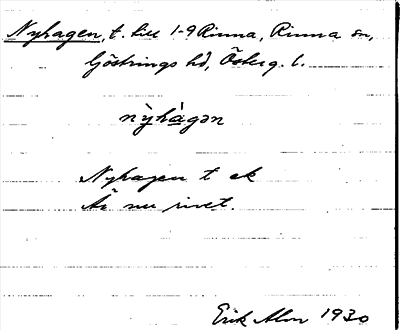 Nyhagen, t. till 1-9 Rinna, Rinna sn,
Göstrings hd, Österg. l.
nỳhàgən
Nyhagen t ek
Är nu rivet.
Erik Alm 1930